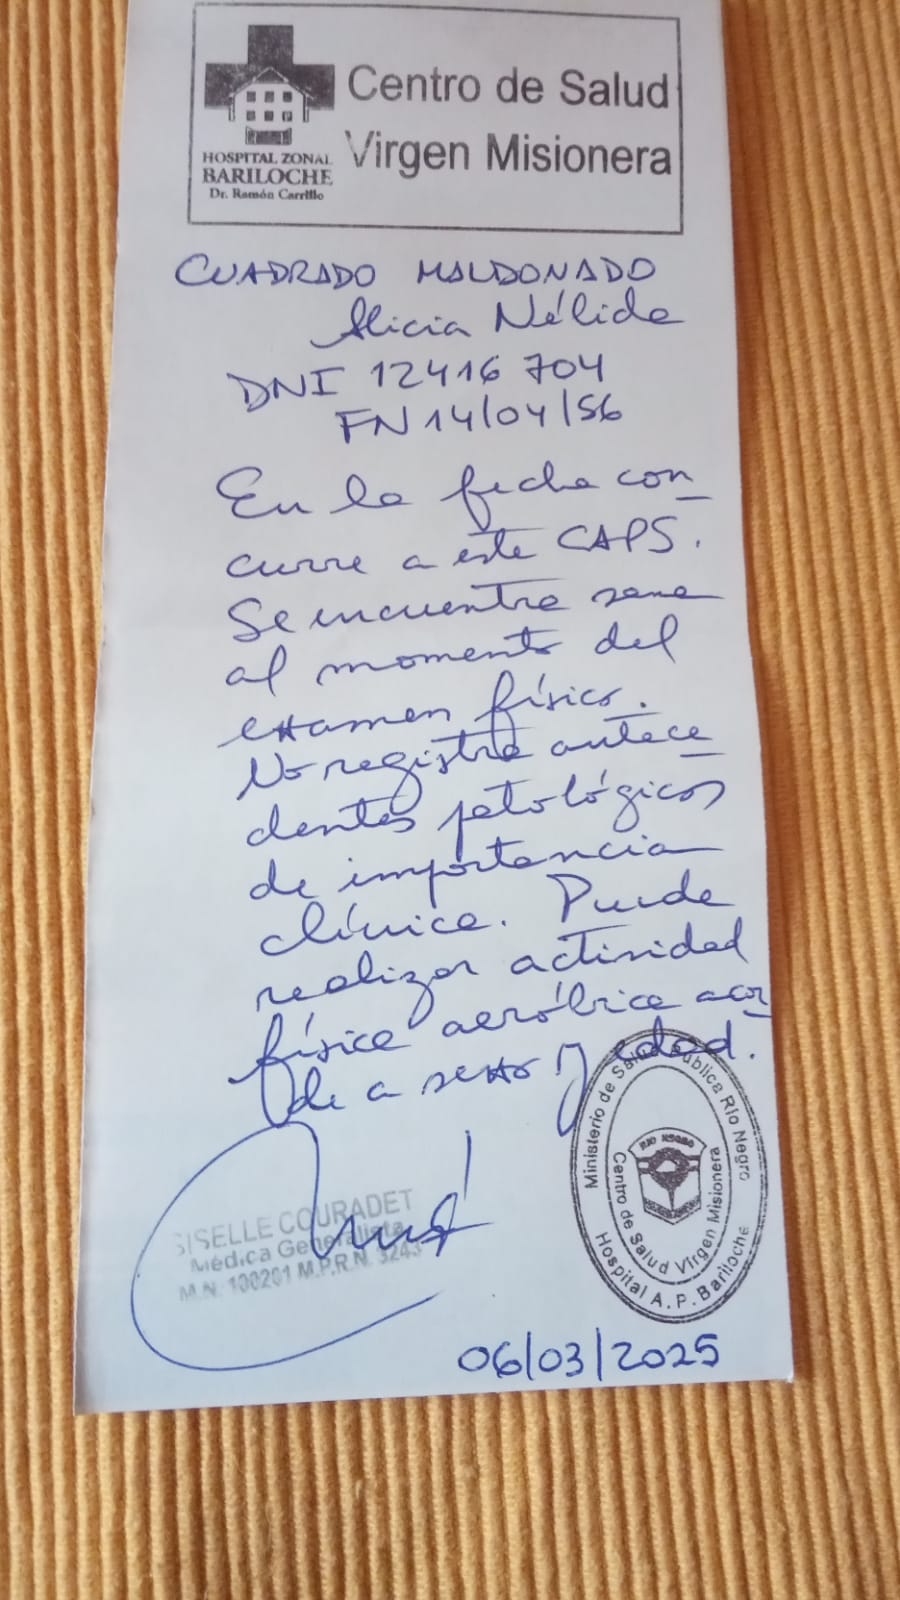 HOSPITAL ZONAL
BARILOCHE
Dr. Ramón Carrillo
Centro de Salud
Virgen Misionera
CUADRADO MALDONADO
Alicia Nélida
DNI 12416704
FN 14/04/56
En la fecha con_
curre a este CAPS.
Se encuentra sana
al momento del
examen físico.
No registra antece_
dentes patológicos
de importancia
clínica. Puede
realizar actividad
física aeróbica acor_
de a sexo y edad.
GISELLE COURADET
Médica Generalista
M.N. 100201 M.P.R.N. 3243
Ministerio de Salud Pública Río Negro
RIO NEGRO
Centro de Salud Virgen Misionera
Hospital A. P. Bariloche
06/03/2025